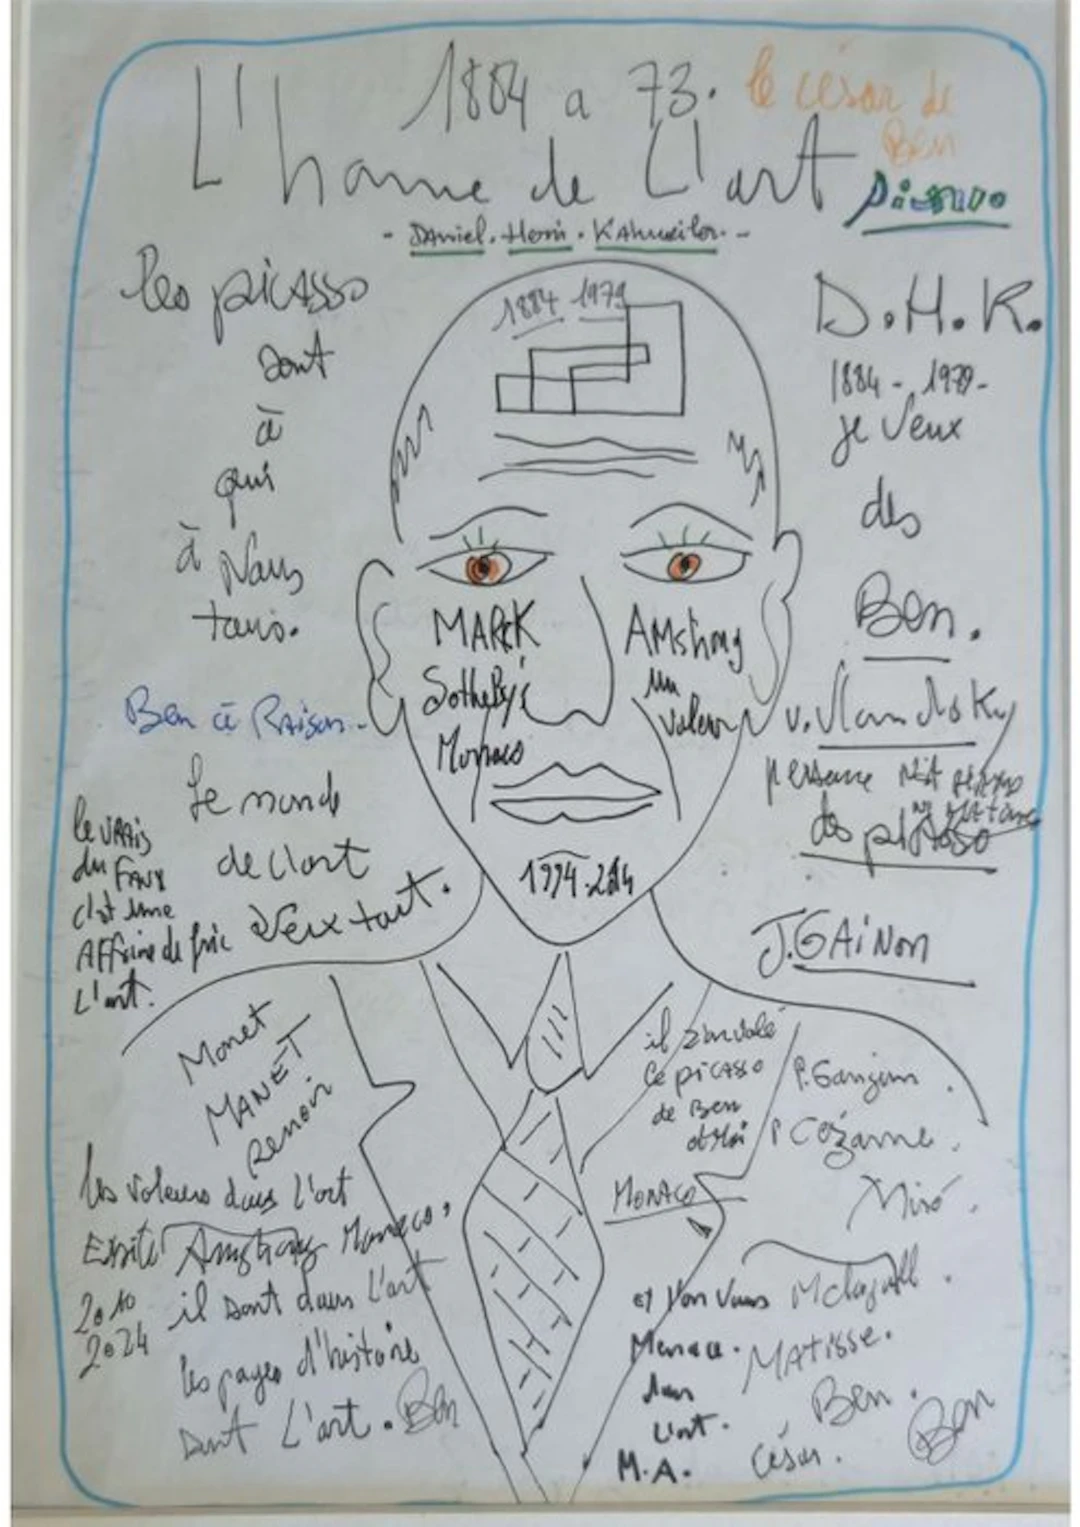 1884 a 73. le césar de
Ben
L'homme de L'art
Picasso
- Daniel. Henri. Kahnweiler. -
les picasso
sont
à
qui
à Nous
tous.
1884 1979
D.H.K.
1884 - 1979 -
je veux
des
Ben.
MARCK
Sotheby's
Monaco
AMstrong
un
voleur
Ben à Raison -
v. Vlan
personne
des picasso
Le monde
de l'art
veux tout.
le vrais
du FAUX
c'est une
Affaire de fric
L'art.
1994-2014
J. GAiNON
Monet
MANET
Renoir
il
le picasso
de Ben
et Moi
MONACO
P. Gauguin
P Cézanne.
Miró.
les voleurs dans l'art
Existe Amstrong Monaco.
2010
2024
il sont dans l'art
les pages d'histoire
sont L'art. Ben
et Von Vous
Menace.
dans
L'art.
M.A.
M Chagall.
MATISSE.
Ben.
César.
Ben